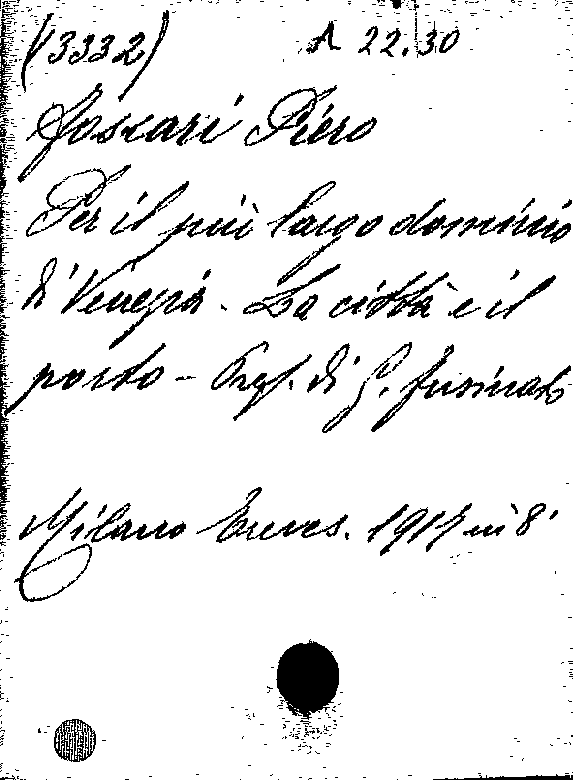 (3332) A 22.30
Foscari Piero
Per il più largo dominio
di Venezia - La città e il
porto - Pref. di G. Fusinato
Milano Treves. 1917 in 8°